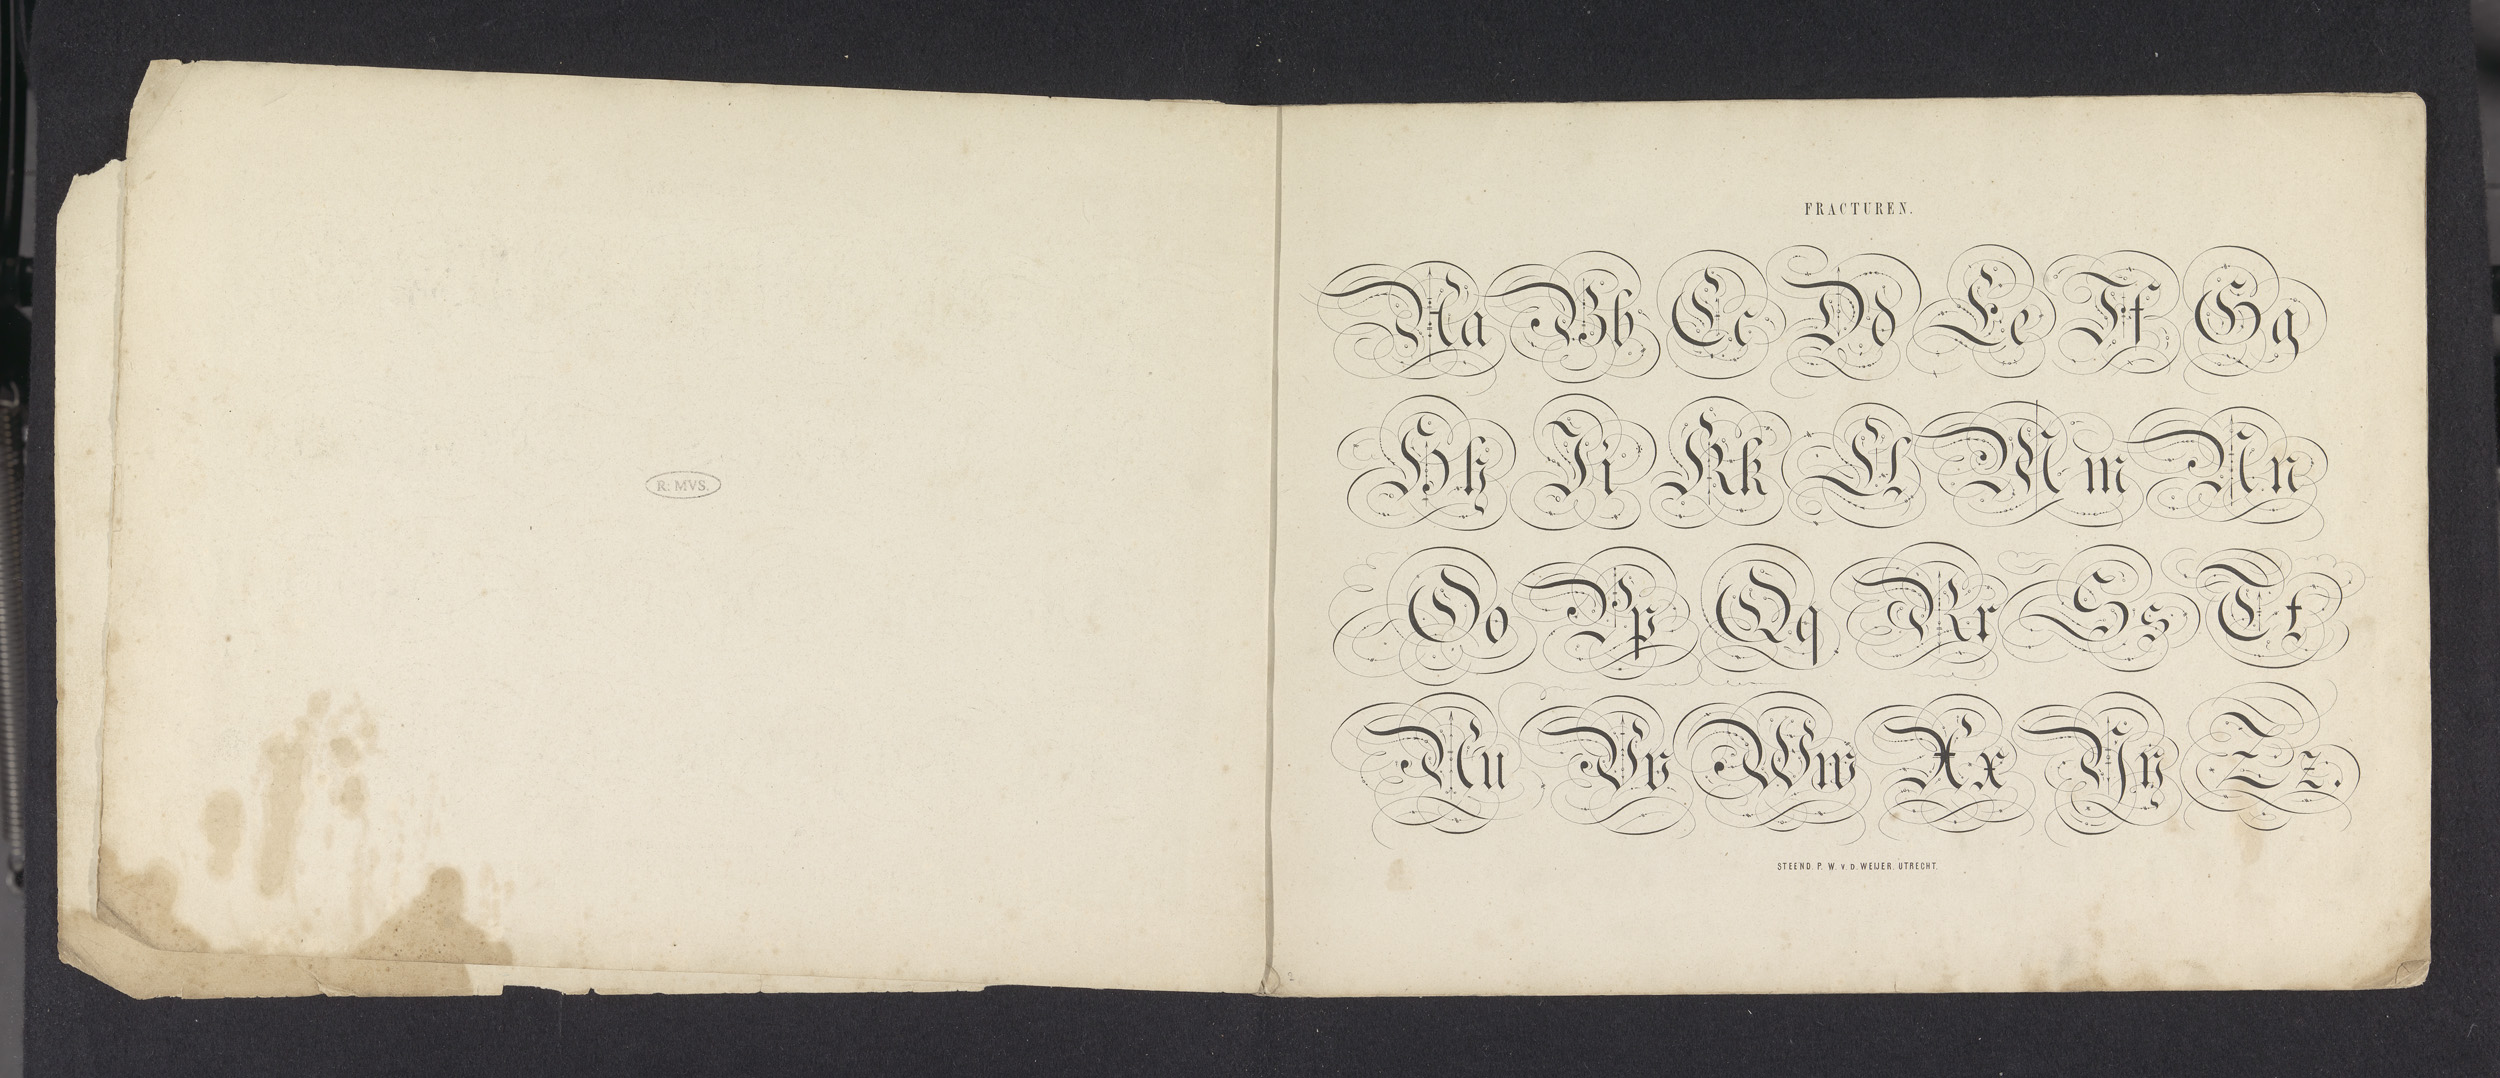 R: MVS.
FRACTUREN.
Aa Bb Cc Dd Ee Ff Gg
Hh Ii Kk Ll Mm Nn
Oo Pp Qq Rr Ss Tt
Uu Vv Ww Xx Yy Zz.
STEEND. P. W. v. D. WEIJER. UTRECHT.